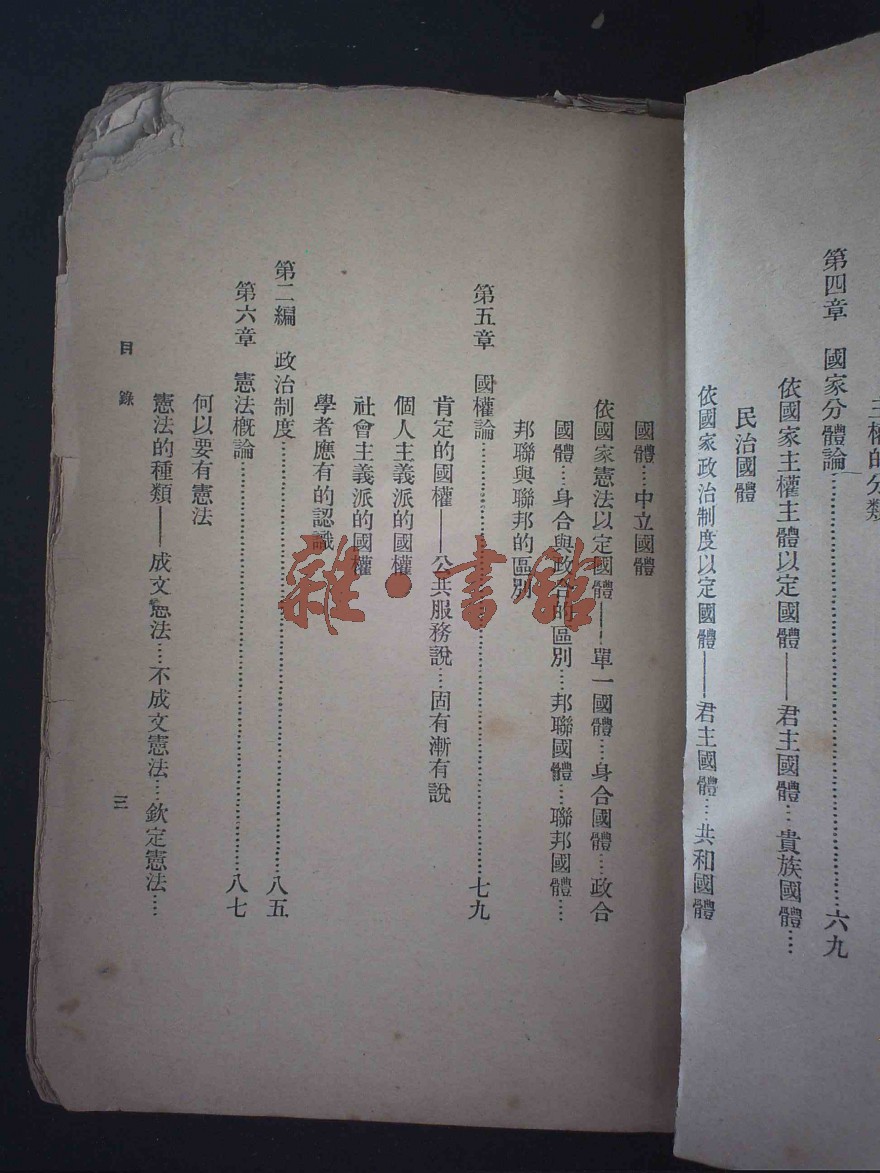 主權的分類
第四章　國家分體論……………………六九
依國家主權主體以定國體——君主國體…貴族國體…
民治國體
依國家政治制度以定國體——君主國體…共和國體
國體…中立國體
依國家憲法以定國體——單一國體…身合國體…政合
國體…身合與政合的區別…邦聯國體…聯邦國體…
邦聯與聯邦的區別
第五章　國權論……………………七九
肯定的國權——公共服務說…固有漸有說
個人主義派的國權
社會主義派的國權
學者應有的認識
第二編　政治制度……………………八五
第六章　憲法概論……………………八七
何以要有憲法
憲法的種類——成文憲法…不成文憲法…欽定憲法…
目錄
三
雜·書館